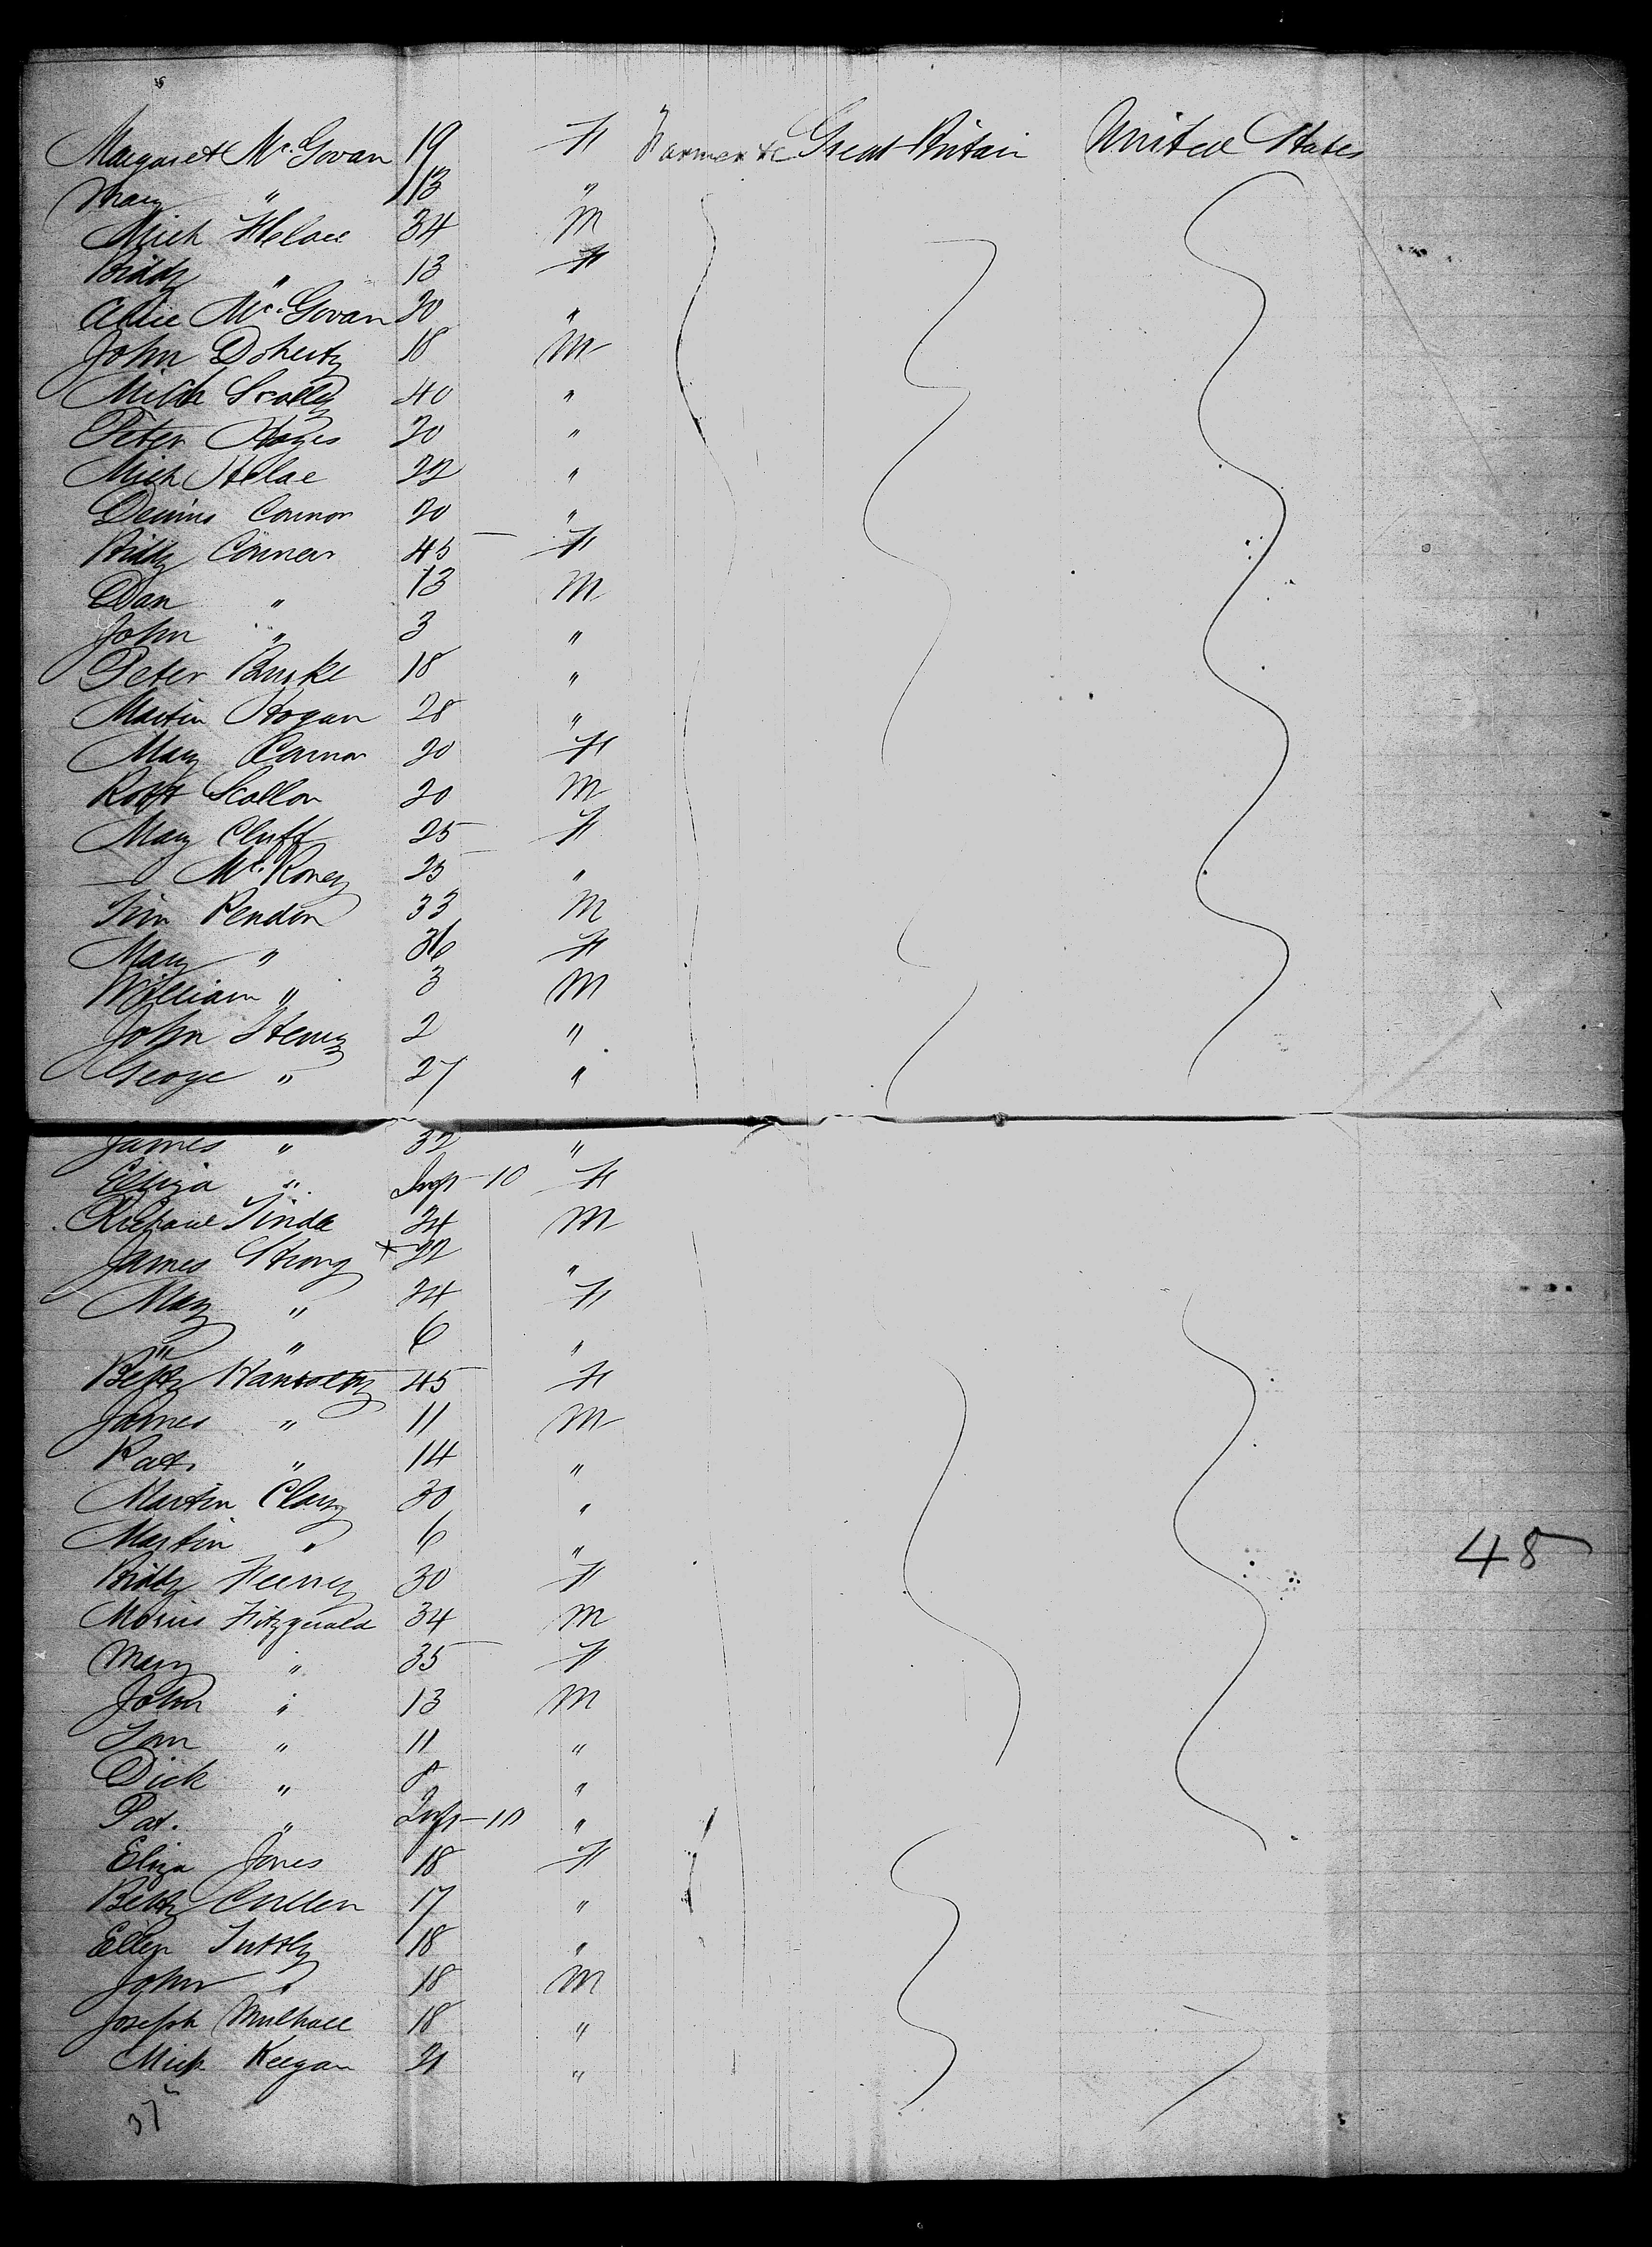 Margaret McGovan 19 F Farmer &c Great Britain United States
Mary " 13 "
Mich 34 M
Biddy " 13 F
McGovan 20 "
John Doherty 18 M
Mich Scolly 40 "
Peter Hayes 20 "
Mich 22 "
Dennis Connor 20 "
Biddy Connor 45 F
Dan " 13 M
John " 3 "
Peter Burke 18 "
Martin Hogan 28 "
Mary Connor 20 F
Robt Scallon 20 M
Mary Cluff 25 F
— McRoney 25 "
Jim Rendon 33 M
Mary " 36 F
William " 3 M
John Henry 2 "
George " 27 "
James " 32 "
Eliza " Inft — 10 F
Richard 24 M
James Strong × 22 "
Mary " 24 F
" " 6 "
Betty 45 F
James " 11 M
Pat. " 14 "
Martin Clary 30 "
Martin " 6 "
Biddy Feeney 30 F
Morris Fitzgerald 34 M
Mary " 35 F
John " 13 M
Tom " 11 "
Dick " 8 "
Pat. " Inft — 10 "
Eliza Jones 18 F
Betty Cullen 17 "
Ellen Tuttly 18 "
John " 18 M
Joseph Mulhall 18 "
Mich Keegan 21 "
48
37